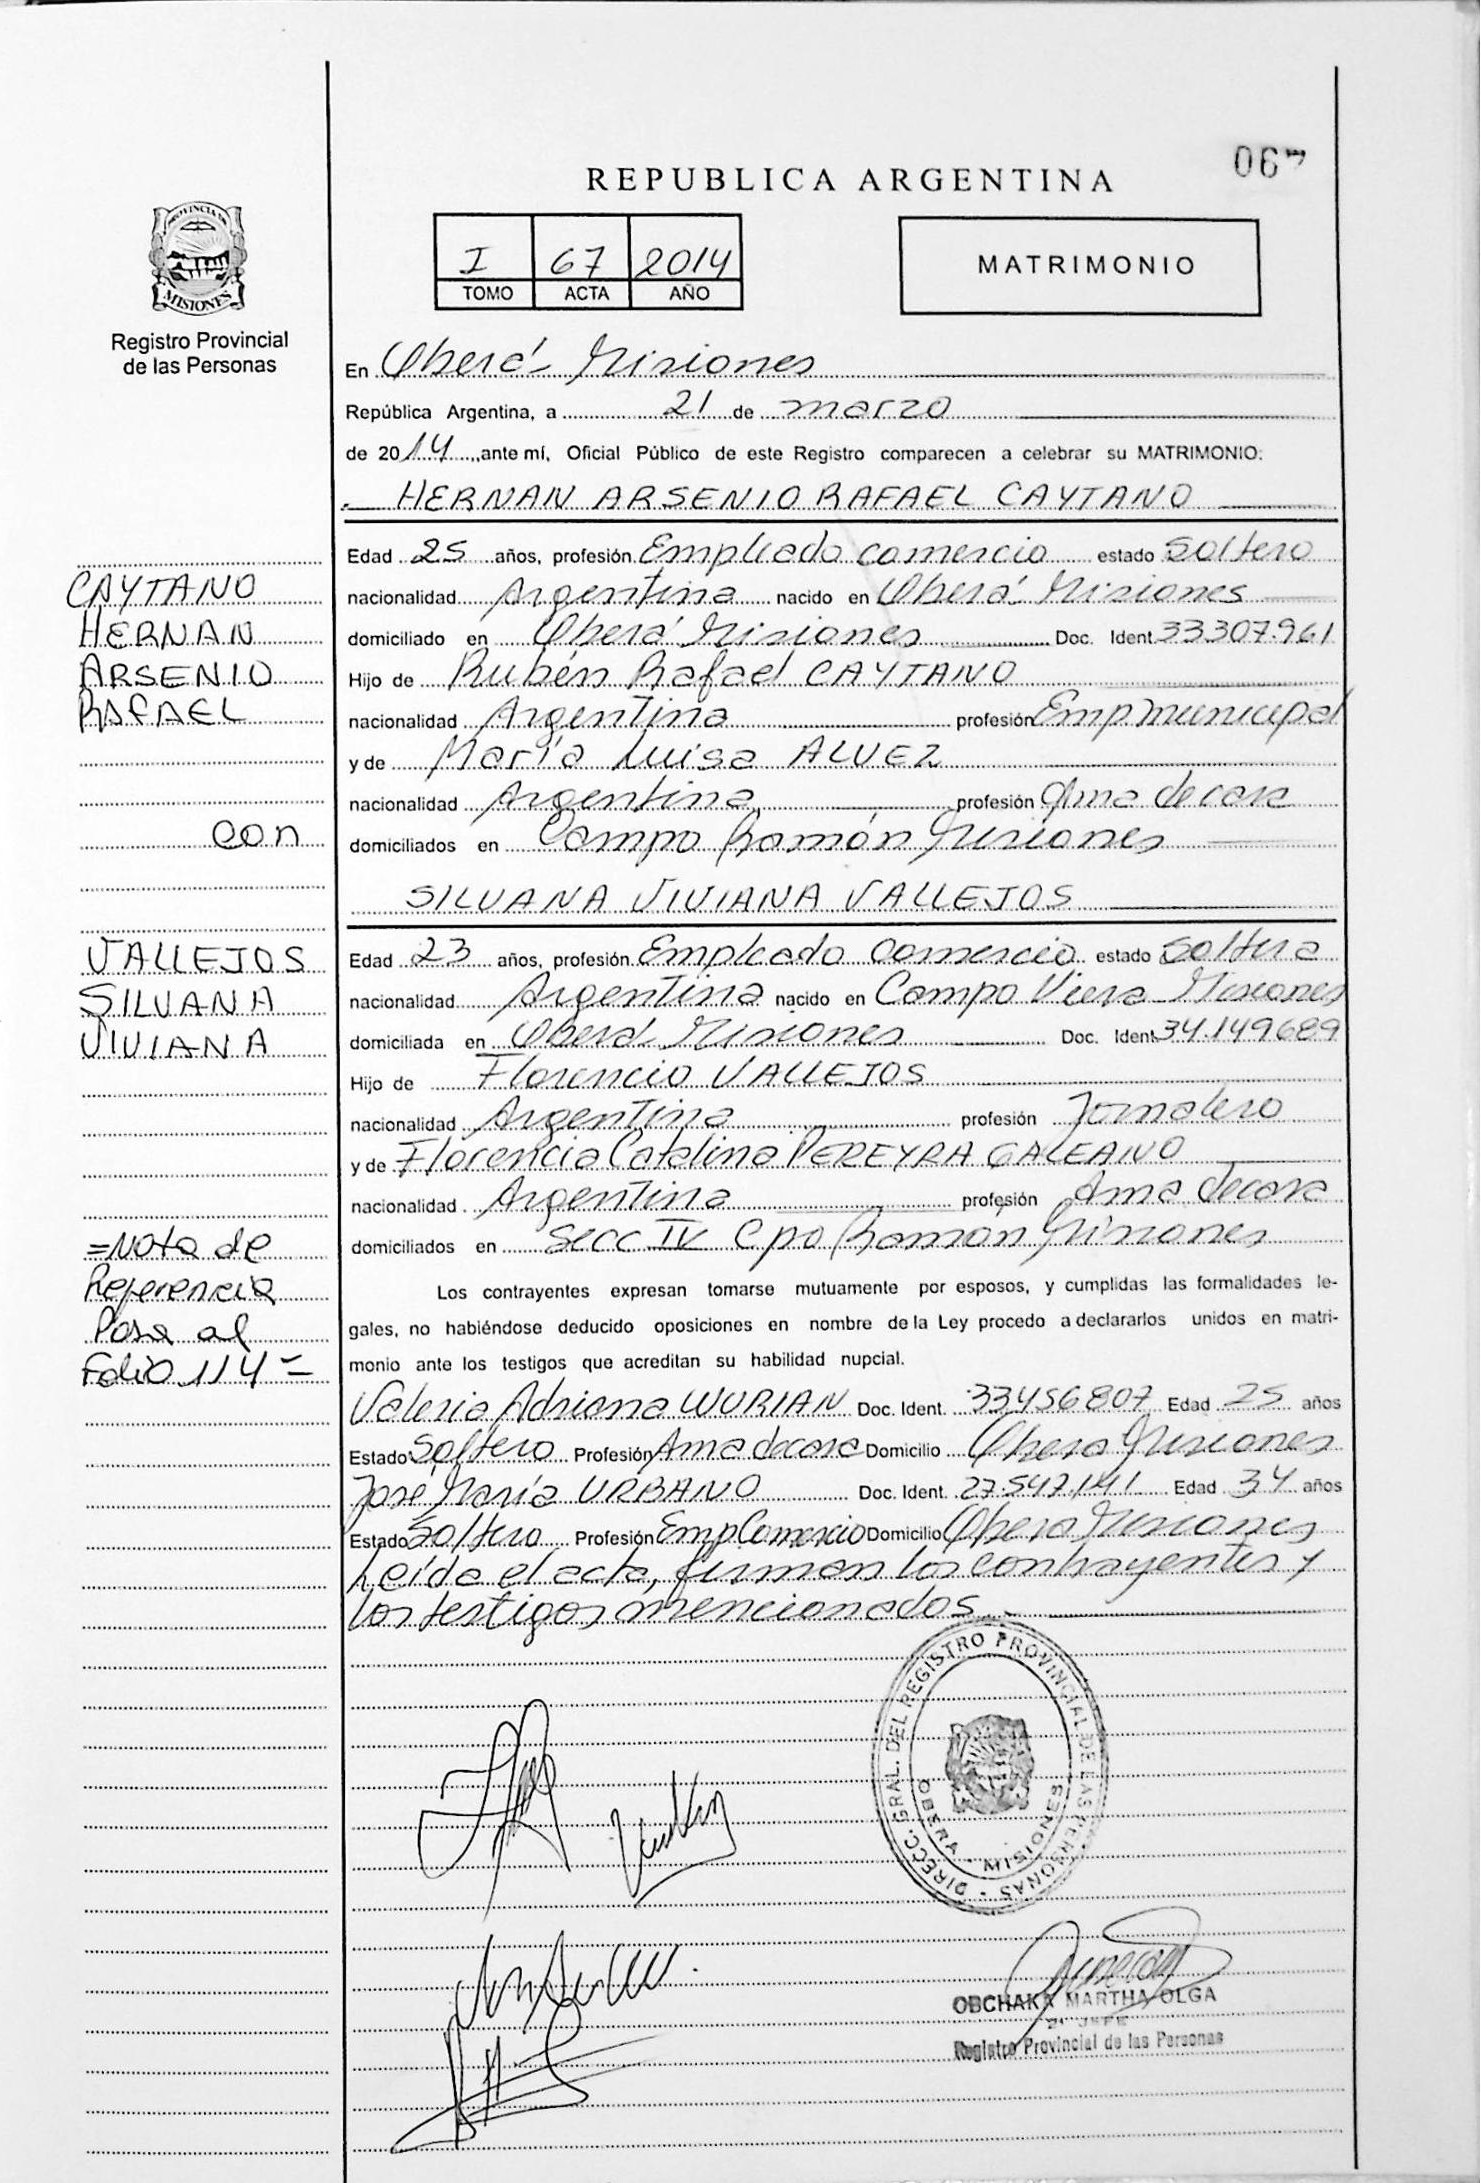 067
REPUBLICA ARGENTINA
I 67 2014
TOMO ACTA AÑO
MATRIMONIO
PROVINCIA DE
MISIONES
Registro Provincial
de las Personas
En Oberá - Misiones
República Argentina, a 21 de marzo
de 2014, ante mí, Oficial Público de este Registro comparecen a celebrar su MATRIMONIO:
HERNAN ARSENIO RAFAEL CAYTANO
Edad 25 años, profesión Empleado comercio estado soltero
nacionalidad Argentina nacido en Oberá Misiones
domiciliado en Oberá Misiones Doc. Ident. 33307.961
Hijo de Rubén Rafael CAYTANO
nacionalidad Argentina profesión Emp municipal
y de María Luisa ALVEZ
nacionalidad Argentina profesión Ama de casa
domiciliados en Campo Ramón Misiones
SILVANA VIVIANA VALLEJOS
Edad 23 años, profesión Empleado comercio estado soltera
nacionalidad Argentina nacido en Campo Viera Misiones
domiciliada en Oberá Misiones Doc. Ident. 34.149689
Hijo de Florencio VALLEJOS
nacionalidad Argentina profesión Jornalero
y de Florencia Catalina PEREYRA GALEANO
nacionalidad Argentina profesión Ama de casa
domiciliados en Secc IV Cpo Ramón Misiones
Los contrayentes expresan tomarse mutuamente por esposos, y cumplidas las formalidades le-
gales, no habiéndose deducido oposiciones en nombre de la Ley procedo a declararlos unidos en matri-
monio ante los testigos que acreditan su habilidad nupcial.
Valeria Adriana WURIAN Doc. Ident. 33456807 Edad 25 años
Estado Soltero Profesión Ama de casa Domicilio Obera Misiones
José María URBANO Doc. Ident. 27.547.141 Edad 34 años
Estado Soltero Profesión Emp Comercio Domicilio Obera Misiones
Leída el acta, firman los contrayentes y
los testigos mencionados
CAYTANO
HERNAN
ARSENIO
RAFAEL
con
VALLEJOS
SILVANA
VIVIANA
=Nota de
Referencia
Pasa al
Folio 114=
DIRECC. GRAL. DEL REGISTRO PROVINCIAL DE LAS PERSONAS
OBERA - MISIONES
OBCHAKA MARTHA OLGA
2ª JEFE
Registro Provincial de las Personas